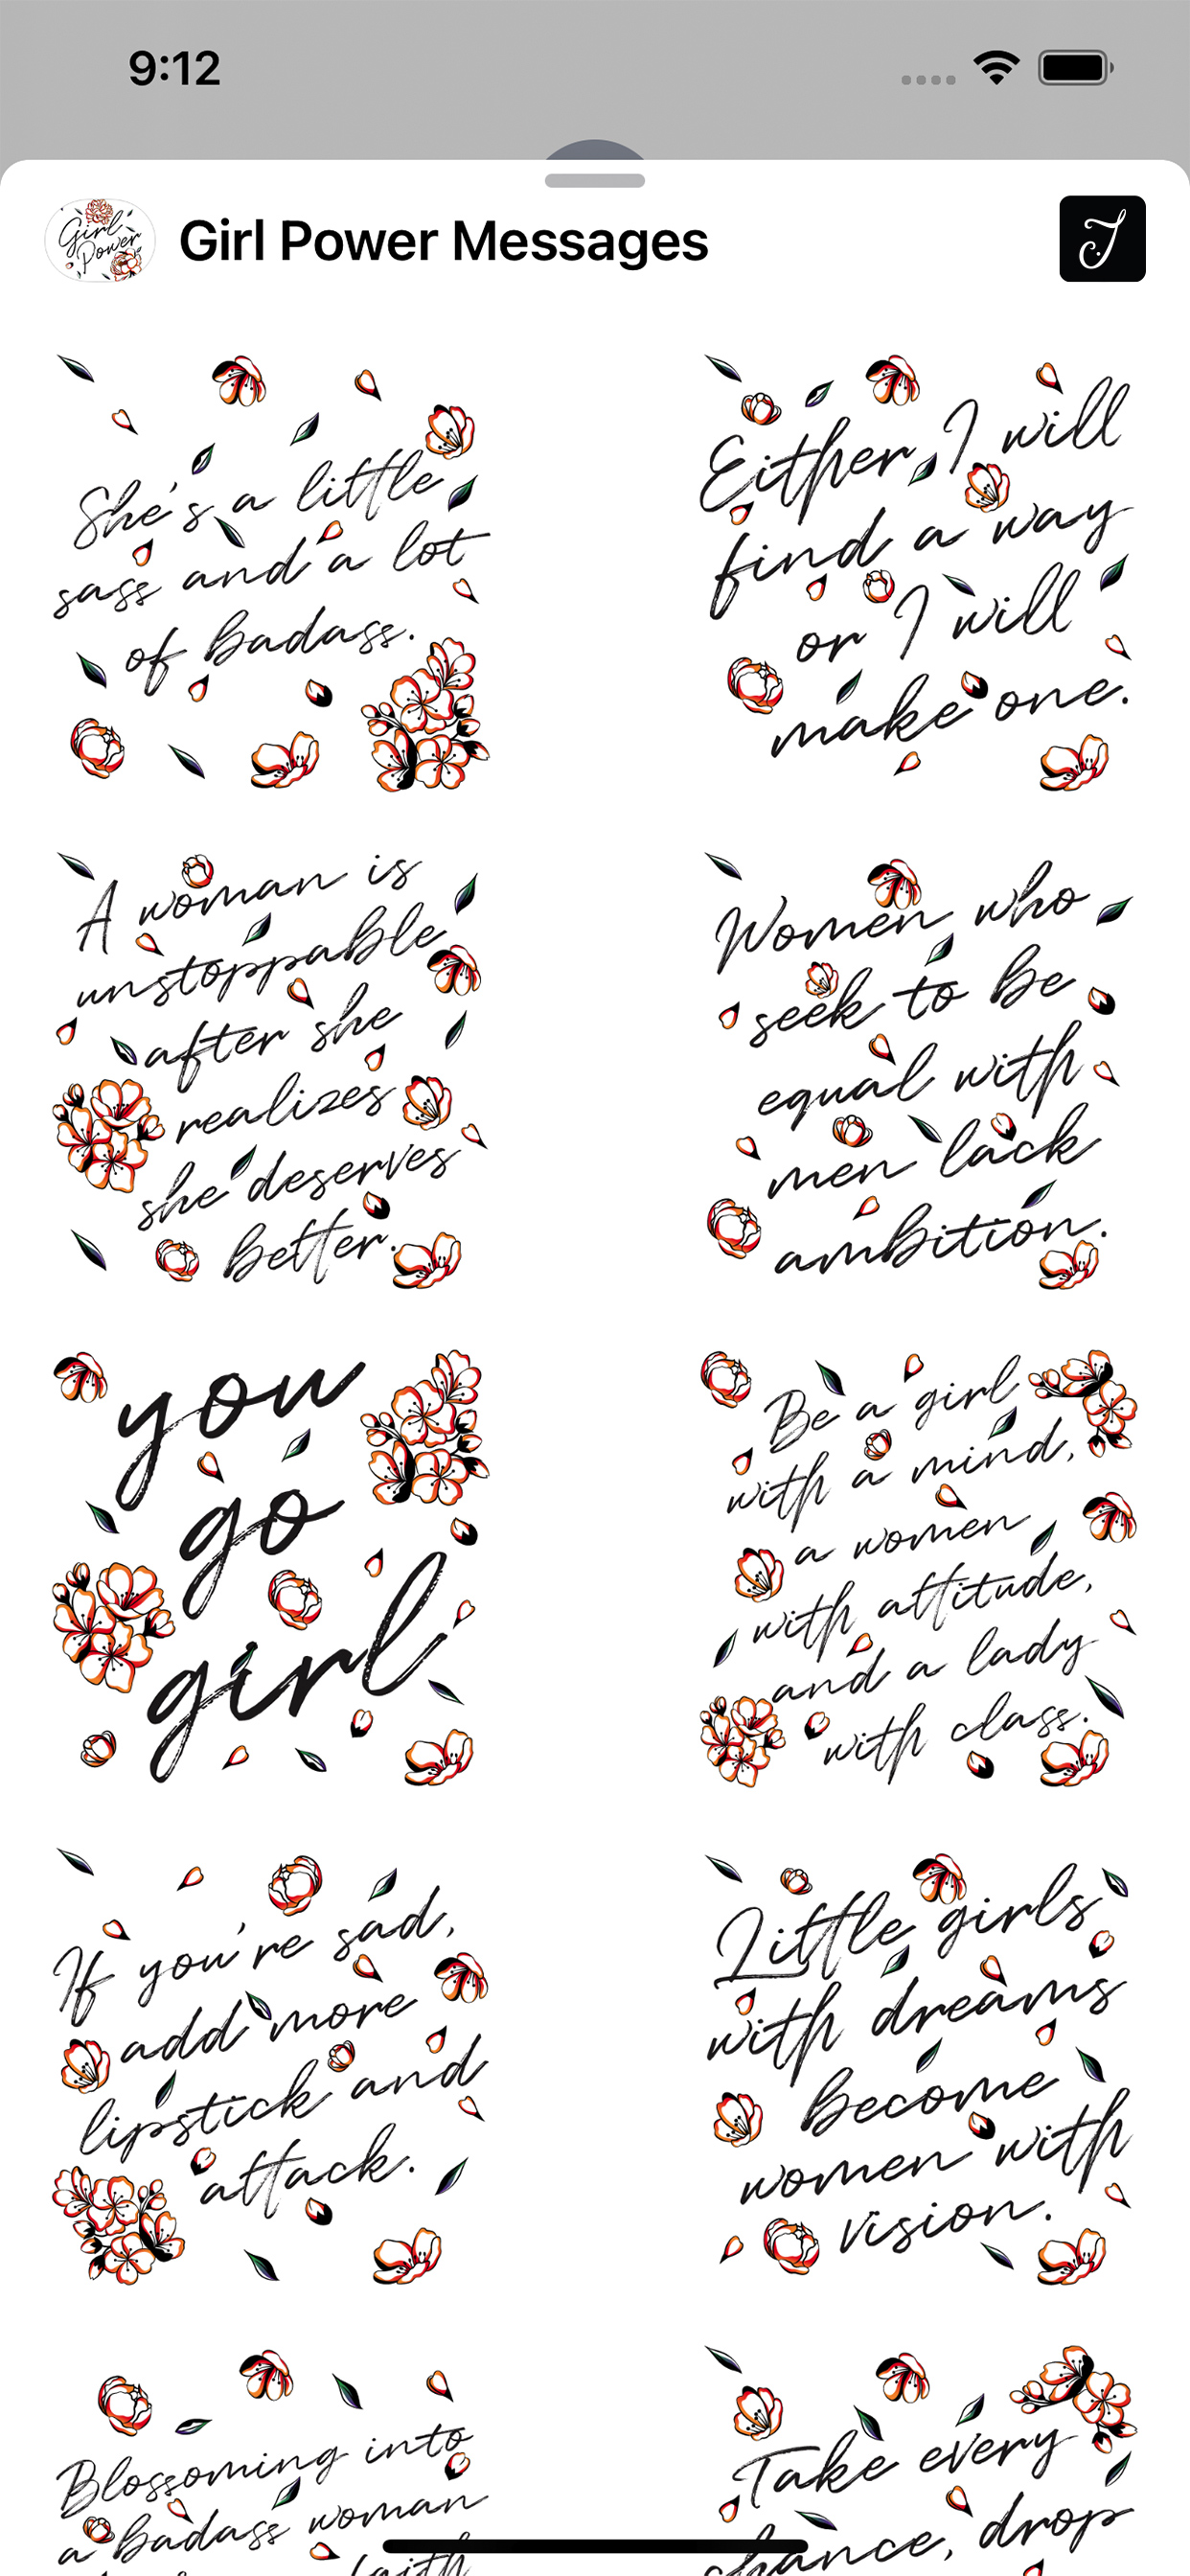 9:12
Girl Power
Girl Power Messages
J
She's a little
sass and a lot
of badass.
Either I will
find a way
or I will
make one.
A woman is
unstoppable
after she
realizes
she deserves
better.
Women who
seek to be
equal with
men lack
ambition.
you
go
girl
Be a girl
with a mind,
a women
with attitude,
and a lady
with class.
If you're sad,
add more
lipstick and
attack.
Little girls
with dreams
become
women with
vision.
Blossoming into
a badass woman
faith
Take every
chance, drop